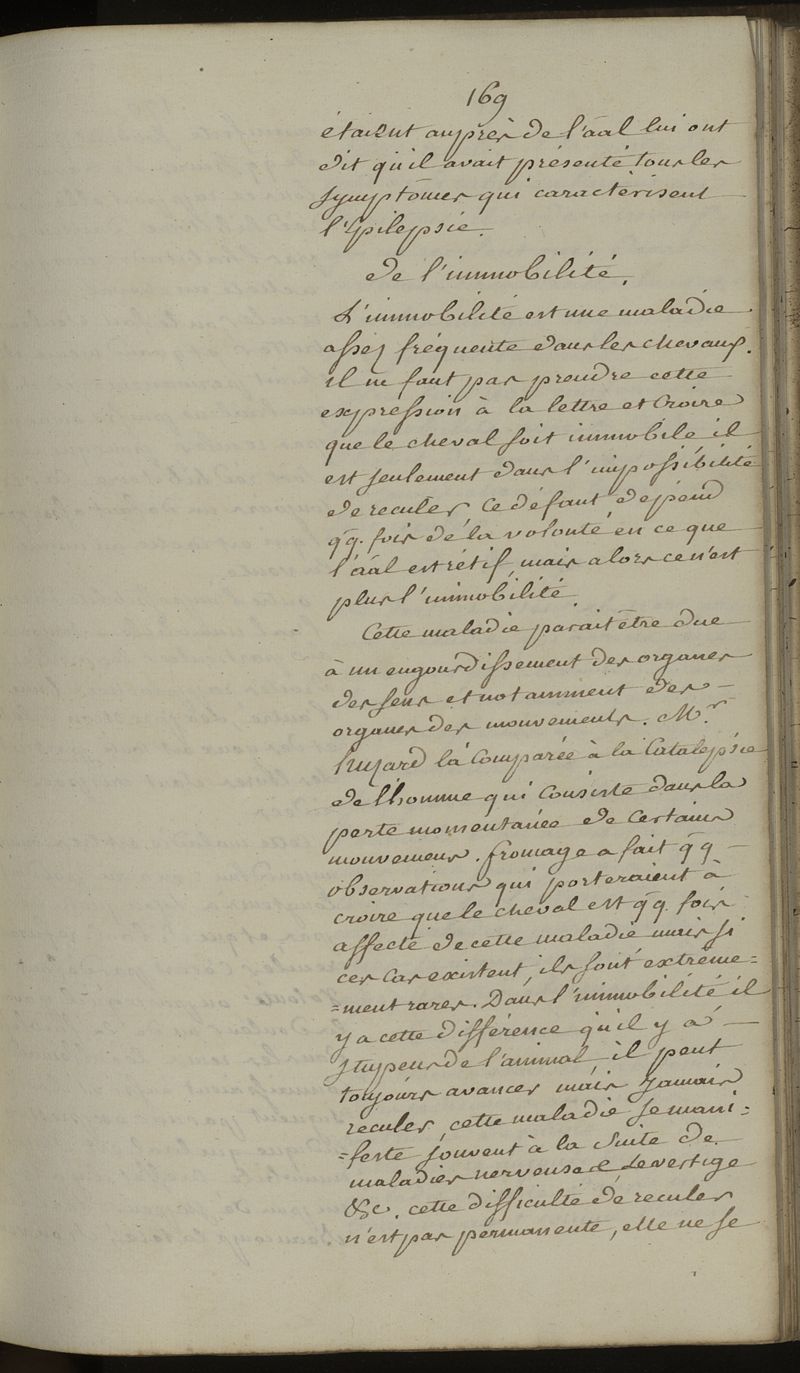 169
étaient auprès de l'āāl lui ont
dit qu'il avait présenté tous les
symptômes qui caractèrisent
l'Epilepsie.
de l'immobilité.
L'immobilité est une maladie
assez fréquente dans les chevaux.
il ne faut pas prendre cette
expression à la lettre et Croire
que le cheval soit immobile il
est seulement dans l'impossibilité
de reculer Ce défaut dépend
q̄q. fois de la volonté en ce que
l'āāl est rétif, mais alors ce n'est
plus l'immobilité.
Cette maladie parait être due
à un engourdissement des organes
des sens et notamment des —
organes des mouvements. Mr.
huzard l'a Comparée à la Catalepsie
de l'homme qui Consiste dans la
perte momentanée de Certains
mouvemens. fromage a fait q̄q —
observations qui porteraient à
croire que le cheval est q̄q. fois
affecté de cette maladie mais si
ces Cas existent, ils sont extrême=
=ment rares. Dans l'immobilité il
y a cette différence qu'il y a —
stupeur de l'animal il peut
toujours avancer mais Jamais
reculer, cette maladie se mani=
=feste souvent à la Suite de
maladies nerveuses le vertige
&c. cette difficulté de reculer
n'est pas permanente, elle ne se